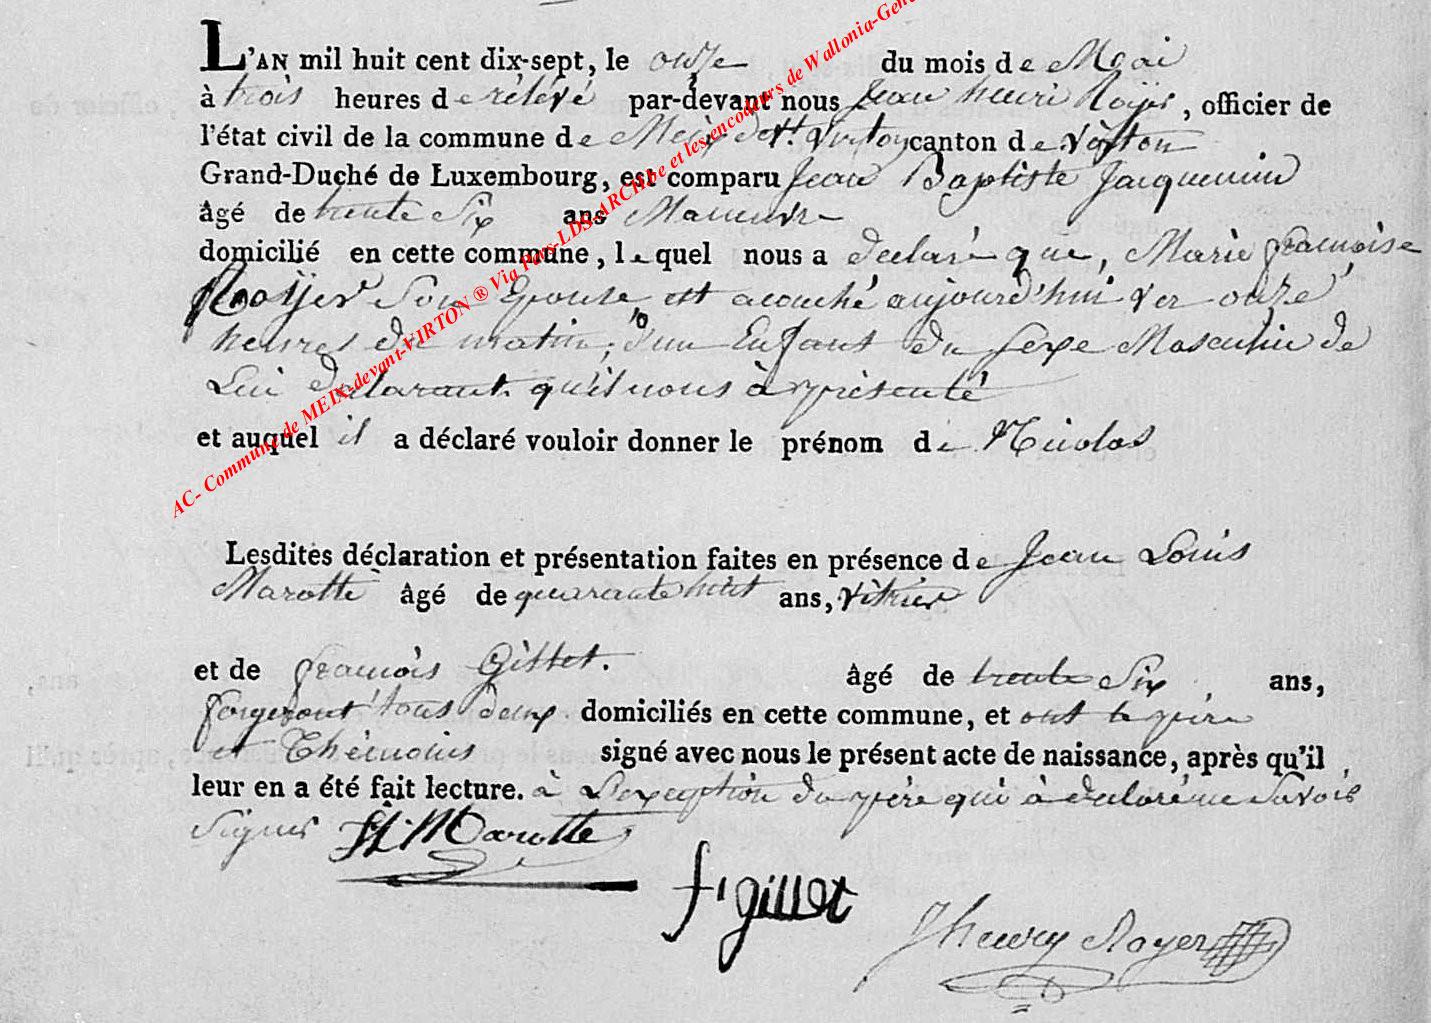 L'AN mil huit cent dix-sept, le onze du mois de Mai
à trois heures de rélévé par-devant nous Jean henri Roÿer, officier de
l'état civil de la commune de Meix devt. Virton canton de virton
Grand-Duché de Luxembourg, est comparu Jean Baptiste Jacquemin
âgé de trente Six ans Maneuvre
domicilié en cette commune, le quel nous a declaré que, Marie françoise
Rooÿer Son Epouse est acouché aujourd'hui ver onze
heures du matin, d'un Enfant du Sexe Masculin de
Lui Dclarant qu'il nous à présenté
et auquel il a déclaré vouloir donner le prénom de Nicolas
Lesdites déclaration et présentation faites en présence de Jean Louis
Marotte âgé de quarante huit ans, vitrier
et de françois Gillet. âgé de trente Six ans,
forgeront tous deux domiciliés en cette commune, et ont le père
et Thémoins signé avec nous le présent acte de naissance, après qu'il
leur en a été fait lecture. à L'exception du père qui à declaré ne Savoir
Signer Marotte
f gillet
J henry Royer
AC- Commune de MEIX-devant-VIRTON ® Via Pars-LDS-ARCH.be et les encodeurs de Wallonia-Gen